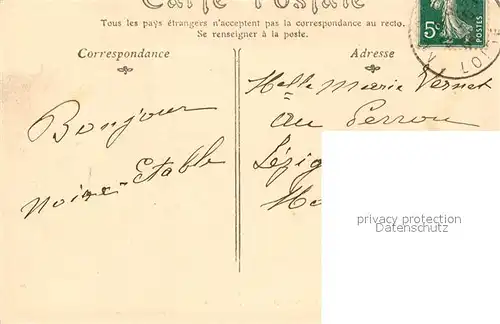 Carte Postale
Tous les pays étrangers n'acceptent pas la correspondance au recto.
Se renseigner à la poste.
Correspondance
Adresse
5c
POSTES
Bonjour
Noire-Etable
Melle Marie Vernet
au Perrou
Lézig
privacy protection
Datenschutz